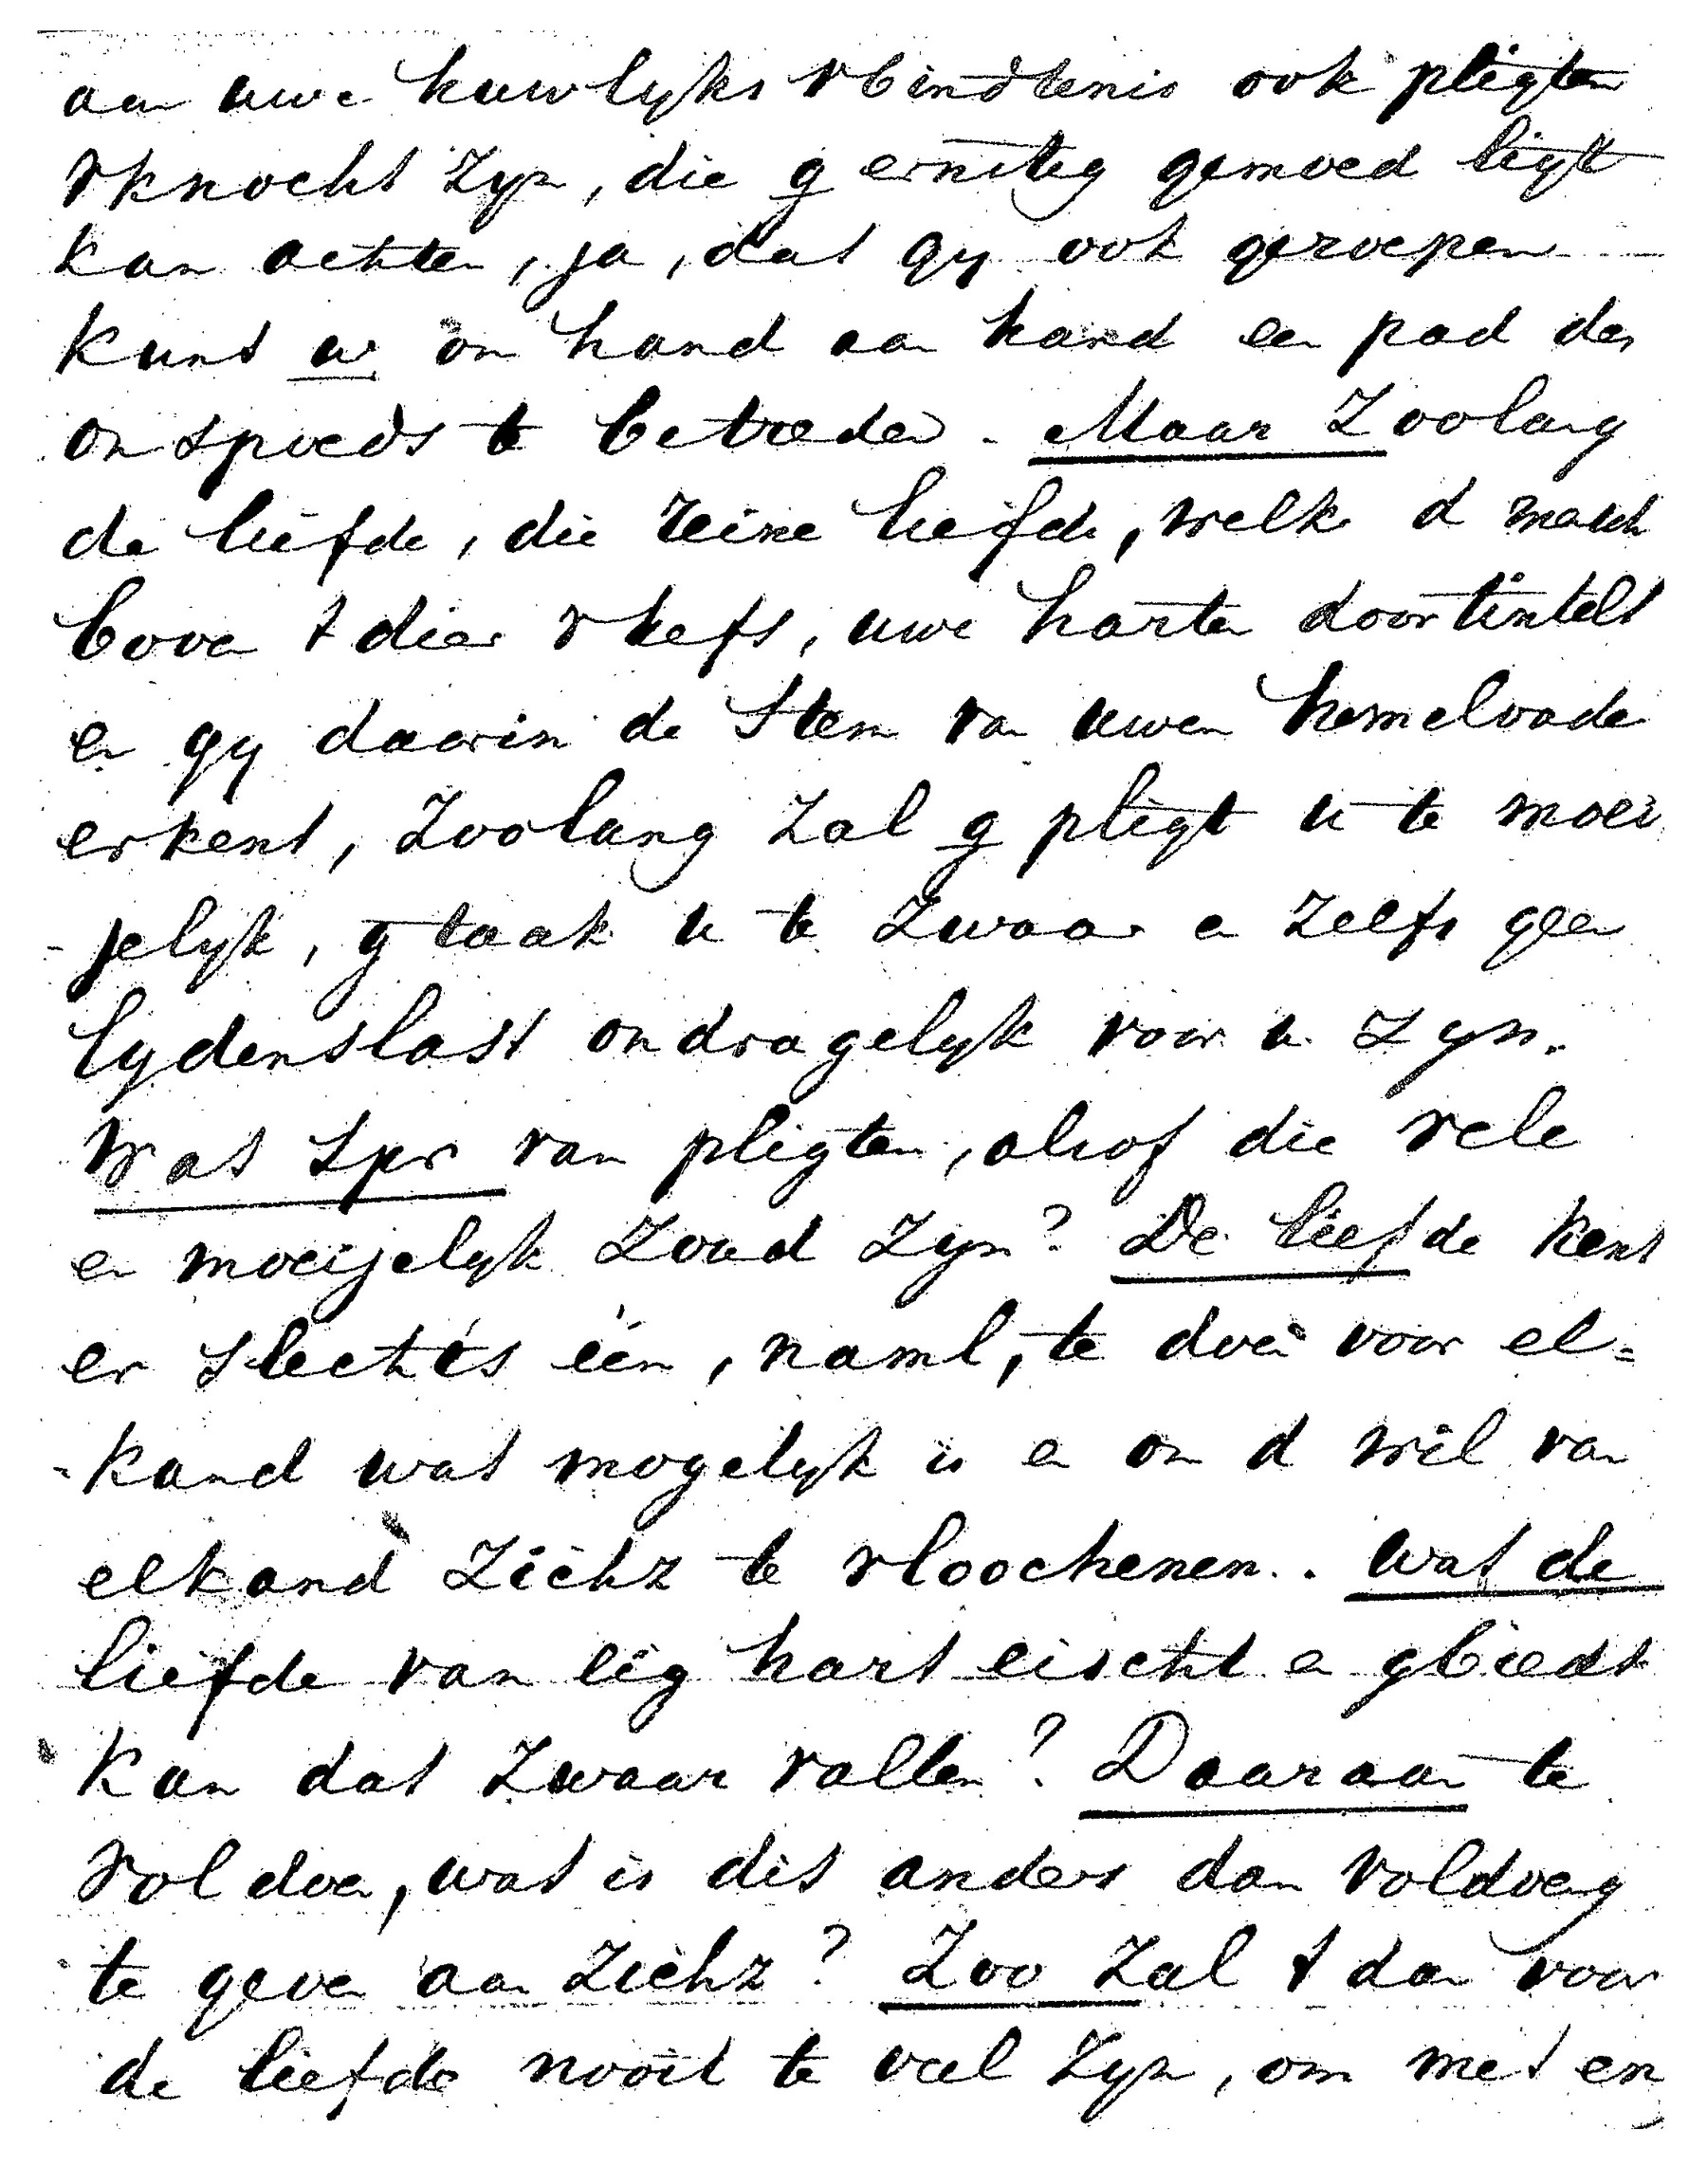 aan uwe huwlyks vbindtenis ook pligten
vknocht zyn, die g ernstig gemoed ligt
kan achten, ja, dat gy ook geroepen
kunt w om hand aan hand een pad des
onspoeds te betreden. Maar Zoolang
de liefde, die reine liefde, welke d mensch
boven t dier vheft, uwe harten doortintelt
en gy daarin de stem van uwen hemelvader
erkent, Zoolang zal g pligt u te moei
-jelyk, g taak u te zwaar en zelfs geen
lydenslast ondragelyk voor u zyn.
Wat spr van pligten, alsof die vele
en moeijelyk zoud zyn? De liefde kent
er slechts één, naml, te doen voor el=
-kand wat mogelyk is en om d wil van
elkand zichz te vloochenen.. Wat de
liefde van eig hart eischt en gbiedt
kan dat zwaar vallen? Daaraan te
voldoen, wat is dit anders dan voldoeng
te geven aan zichz? Zoo zal t dan voor
de liefde nooit te veel zyn, om met en